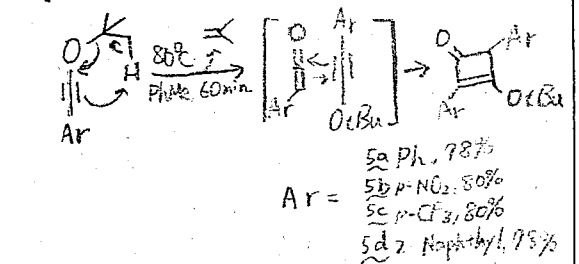 O
H
Ar
80°C
PhMe, 60min
O
Ar
Ar
OtBu
O
Ar
Ar
OtBu
Ar =
5a Ph, 98%
5b p-NO2, 80%
5c p-CF3, 80%
5d 2-Naphthyl, 95%